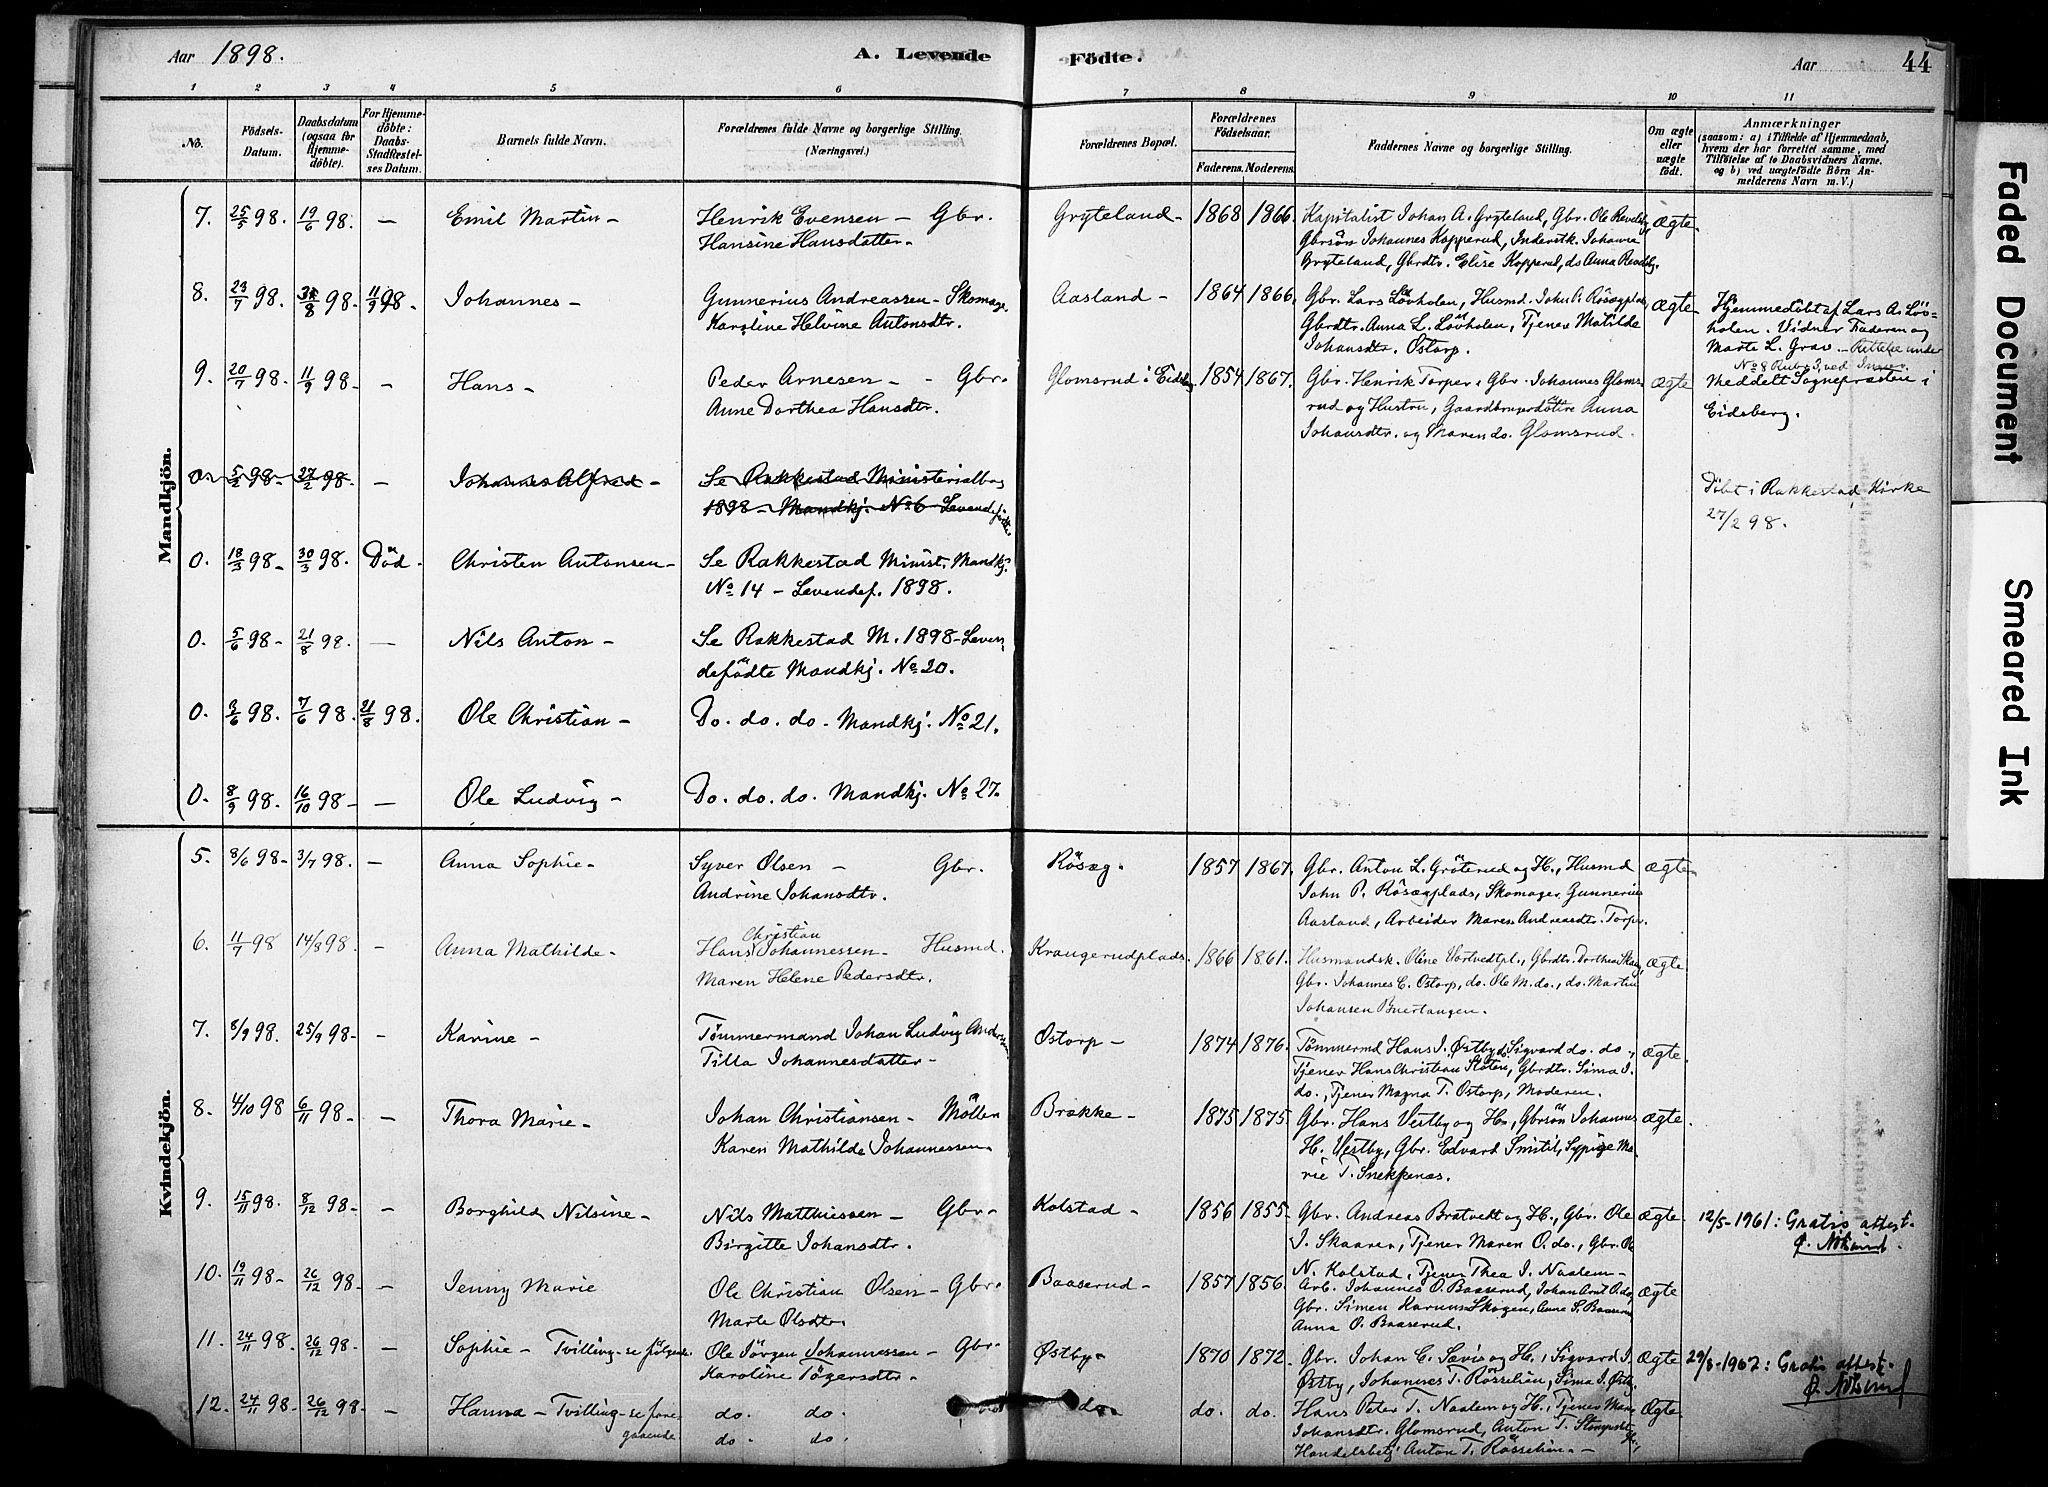 Aar 1898.
A. Levende
Födte.
Aar
44
1 2 3 4 5 6 7 8 9 10 11
No.
Födsels-
Datum.
Daabsdatum
(ogsaa for
Hjemme-
döbte).
For Hjemme-
döbte:
Daabs-
Stadfæstel-
ses Datum.
Barnets fulde Navn.
Forældrenes fulde Navne og borgerlige Stilling.
(Næringsvei.)
Forældrenes Bopæl.
Forældrenes
Födselsaar.
Faderens. Moderens.
Faddernes Navne og borgerlige Stilling.
Om ægte
eller
uægte
födt.
Anmærkninger
(saasom: a) i Tilfælde af Hjemmedaab,
hvem der har forrettet samme, med
Tilföielse af to Daabsvidners Navne.
og b) ved uægtefödte Börn An-
melderens Navn m. V.)
Mandkjön.
7. 25/5 98. 19/6 98. — Emil Martin – Henrik Evensen – Gbr. Gryteland – 1868 1866. Kapitalist Johan A. Gryteland, Gbr. Ole Ægte.
Hansine Hansdatter. Gbrsön Johannes Kopperud, Inderstk. Johanne
Gryteland, Gbrdtr. Elise Kopperud, do Anna
8. 23/7 98. 98. 11/9 98. Johannes – Gunnerius Andreassen – Skomager Aasland – 1864 1866. Gbr. Lars Lövholen, Husmd. John P. Rösægplads, Ægte Hjemmedöbt af Lars A. Löv-
Karoline Helvine Antonsdtr. Gbrdtr. Anna L. Lövholen, Tjener Matilde holen. Vidner Faderen og
Johansdtr. Østorp. Marte L. Grav. – Rettelse under
No 8 Rubr. 3, ved
9. 20/7 98. 11/9 98. – Hans – Peder Arnesen – Gbr. Glomsrud i Eidsberg 1854 1867. Gbr. Henrik Torper, Gbr. Johannes Gloms- Ægte Meddelt Sognepræsten i
Anne Dorthea Hansdtr. rud og Hustru, Gaardbrugerdötre Anna Eidsberg.
Johansdtr. og Maren do. Glomsrud.
0. 5/2 98. 27/2 98. – Johannes Alfred – Se Rakkestad Ministerialbog Döbt i Rakkestad Kirke
1898 – Mandkj. No 6 Levendefödte. 27/2 98.
0. 18/3 98. 30/3 98. Död. Christen Antonsen – Se Rakkestad Minist. Mandkj.
No 14 – Levendef. 1898.
0. 5/6 98. 21/8 98. — Nils Anton – Se Rakkestad M. 1898 – Leven-
defödte Mandkj. No 20.
0. 3/6 98. 7/6 98. 21/8 98. Ole Christian – Do. do. do. Mandkj. No 21.
0. 8/9 98. 16/10 98. — Ole Ludvig – Do. do. do. Mandkj. No 27.
Kvindekjön.
5. 8/6 98. 3/7 98. — Anna Sophie – Syver Olsen – Gbr. Rösæg. 1857 1867. Gbr. Anton L. Gröterud og H., Husmd Ægte
Andrine Johansdtr. John P. Rösægplads, Skomager Gunnerius
Aasland, Arbeider Maren Andreasdtr. Torper.
6. 11/7 98 14/8 98. – Anna Mathilde – Hans Christian Johannessen – Husmd. Krangerudplads. 1866 1861. Husmandsk. Oline Vortvedtpl., Gbrdtr. Dorthea Ægte
Maren Helene Pedersdtr. Gbr. Johannes C. Østorp, do. Ole M. do., do. Martin
Johansen Buertangen.
7. 8/9 98. 25/9 98. – Karine – Tömmermand Johan Ludvig Andersen Østorp – 1874 1876. Tömmermd Hans J. Østby, Sigvard do. do., Ægte.
Tilla Johannesdatter – Tjener Hans Christian Slöten, Gbrdtr. Sima J.
do., Tjener Magna T. Østorp, Moderen.
8. 4/10 98 6/11 98. – Thora Marie – Johan Christiansen – Möller Brække – 1875 1875. Gbr. Hans Vestby og H., Gbrsön Johannes Ægte.
Karen Mathilde Johannessen H. Vestby, Gbr. Edvard Smitil, Sypige Ma-
rie T. Snekkenæs.
9. 15/11 98. 8/12 98. – Borghild Nilsine – Nils Matthiessen – Gbr. Kolstad – 1856 1855. Gbr. Andreas Bratvedt og H., Gbr. Ole Ægte. 12/5-1961: Gratis attest.
Birgitte Johansdtr. J. Skaaren, Tjener Maren O. do., Gbr. Ole
N. Kolstad, Tjener Thea J. Naalem –
10. 19/11 98. 26/12 98. – Jenny Marie Ole Christian Olsen – Gbr. Baaserud – 1857 1856. Arb. Johannes O. Baaserud, Johan Arnt O. do, Ægte
Marte Olsdtr. Gbr. Simen Skogen, Anne S. Baaserud
Anna O. Baaserud.
11. 24/11 98. 26/12 98. – Sophie – Tvilling – se fölgende. Ole Jörgen Johannessen – Gbr. Østby – 1870 1872. Gbr. Johan C. Sævis og H., Sigvard J. Ægte 29/8-1962: Gratis attest.
Karoline Tögersdtr. Østby, Johannes T. Rösselien, Sima J. Østby
12. 24/11 98. 26/12 98. – Hanna – Tvilling – se fore- do. do. do. do. do. Hans Peter T. Naalem og H., Tjener Ægte.
gaaende. do. do. Johansdtr. Glomsrud, Anton T.
Handelsbetj. Anton T. Rösselien –
Faded Document
Smeared Ink